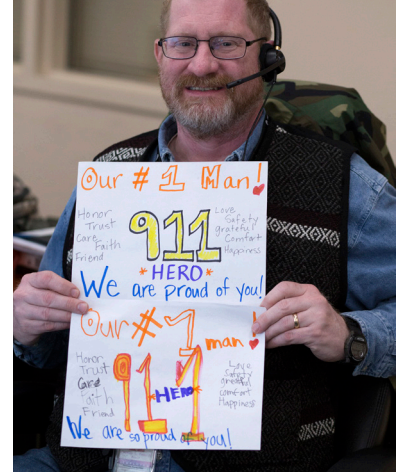 Our # 1 Man!
Honor
Trust
Care
Faith
Friend
911
Love
Safety
grateful
Comfort
Happiness
*HERO*
We are proud of you!
Our #1 man!
Honor
Trust
Care
Faith
Friend
911
*HERO*
Love
Safety
grateful
comfort
Happiness
We are so proud of you!